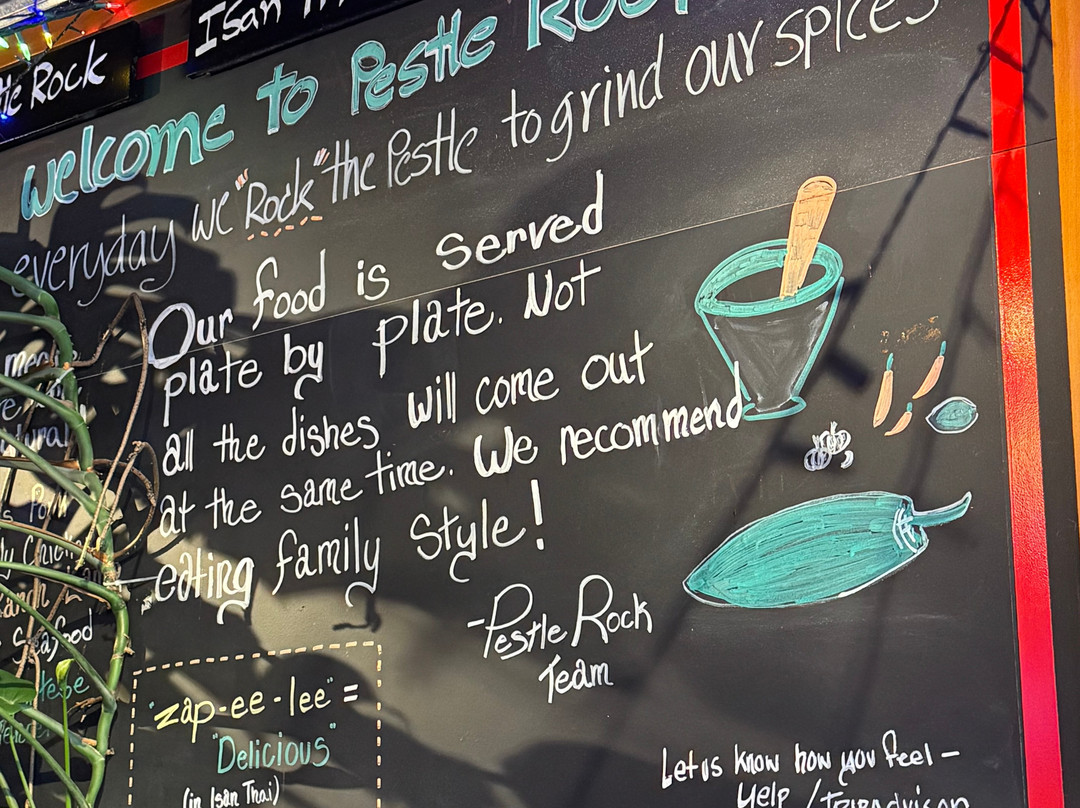 Isan
Rock
welcome to Pestle
everyday we "Rock" the Pestle to grind our spices
Our food is served
plate by plate. Not
all the dishes will come out
at the same time. We recommend
eating family style!
-Pestle Rock
Team
"zap-ee-lee" =
"Delicious"
(in Isan Thai)
Let us know how you feel -
Yelp / Tripadvisor